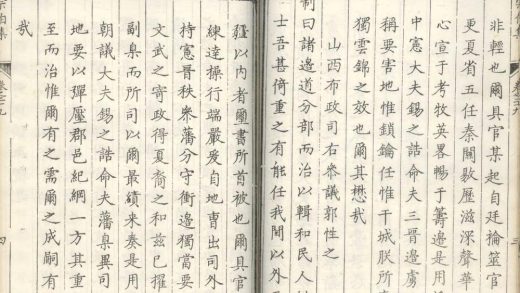 非輕也爾具官某起自廷掄官
更夏省五任秦關敭歷滋深聲華
心宣于考牧英畧暢于籌邊是用
中憲大夫錫之誥命夫三晉邊虜
稱要害地惟鎖鑰任惟干城朕所
獨雲錦之效也爾其懋哉
山西布政司右參議郭性之
制曰諸邊道分部而治以輯和民人
士吾甚倚重之有能任我閫以外
疆以內者璽書所首被也爾具官
練達操行端嚴爰自地曹出司外
持憲晉秩參藩分守衝邊獨當要
文武之寄政得夏裔之和茲已擢
副臬而所司以爾最績來奏是用
朝議大夫錫之誥命夫藩臬異司
地要以彈壓郡邑紀綱一方其重
至而治惟爾有之需爾之成嗣有
哉
四